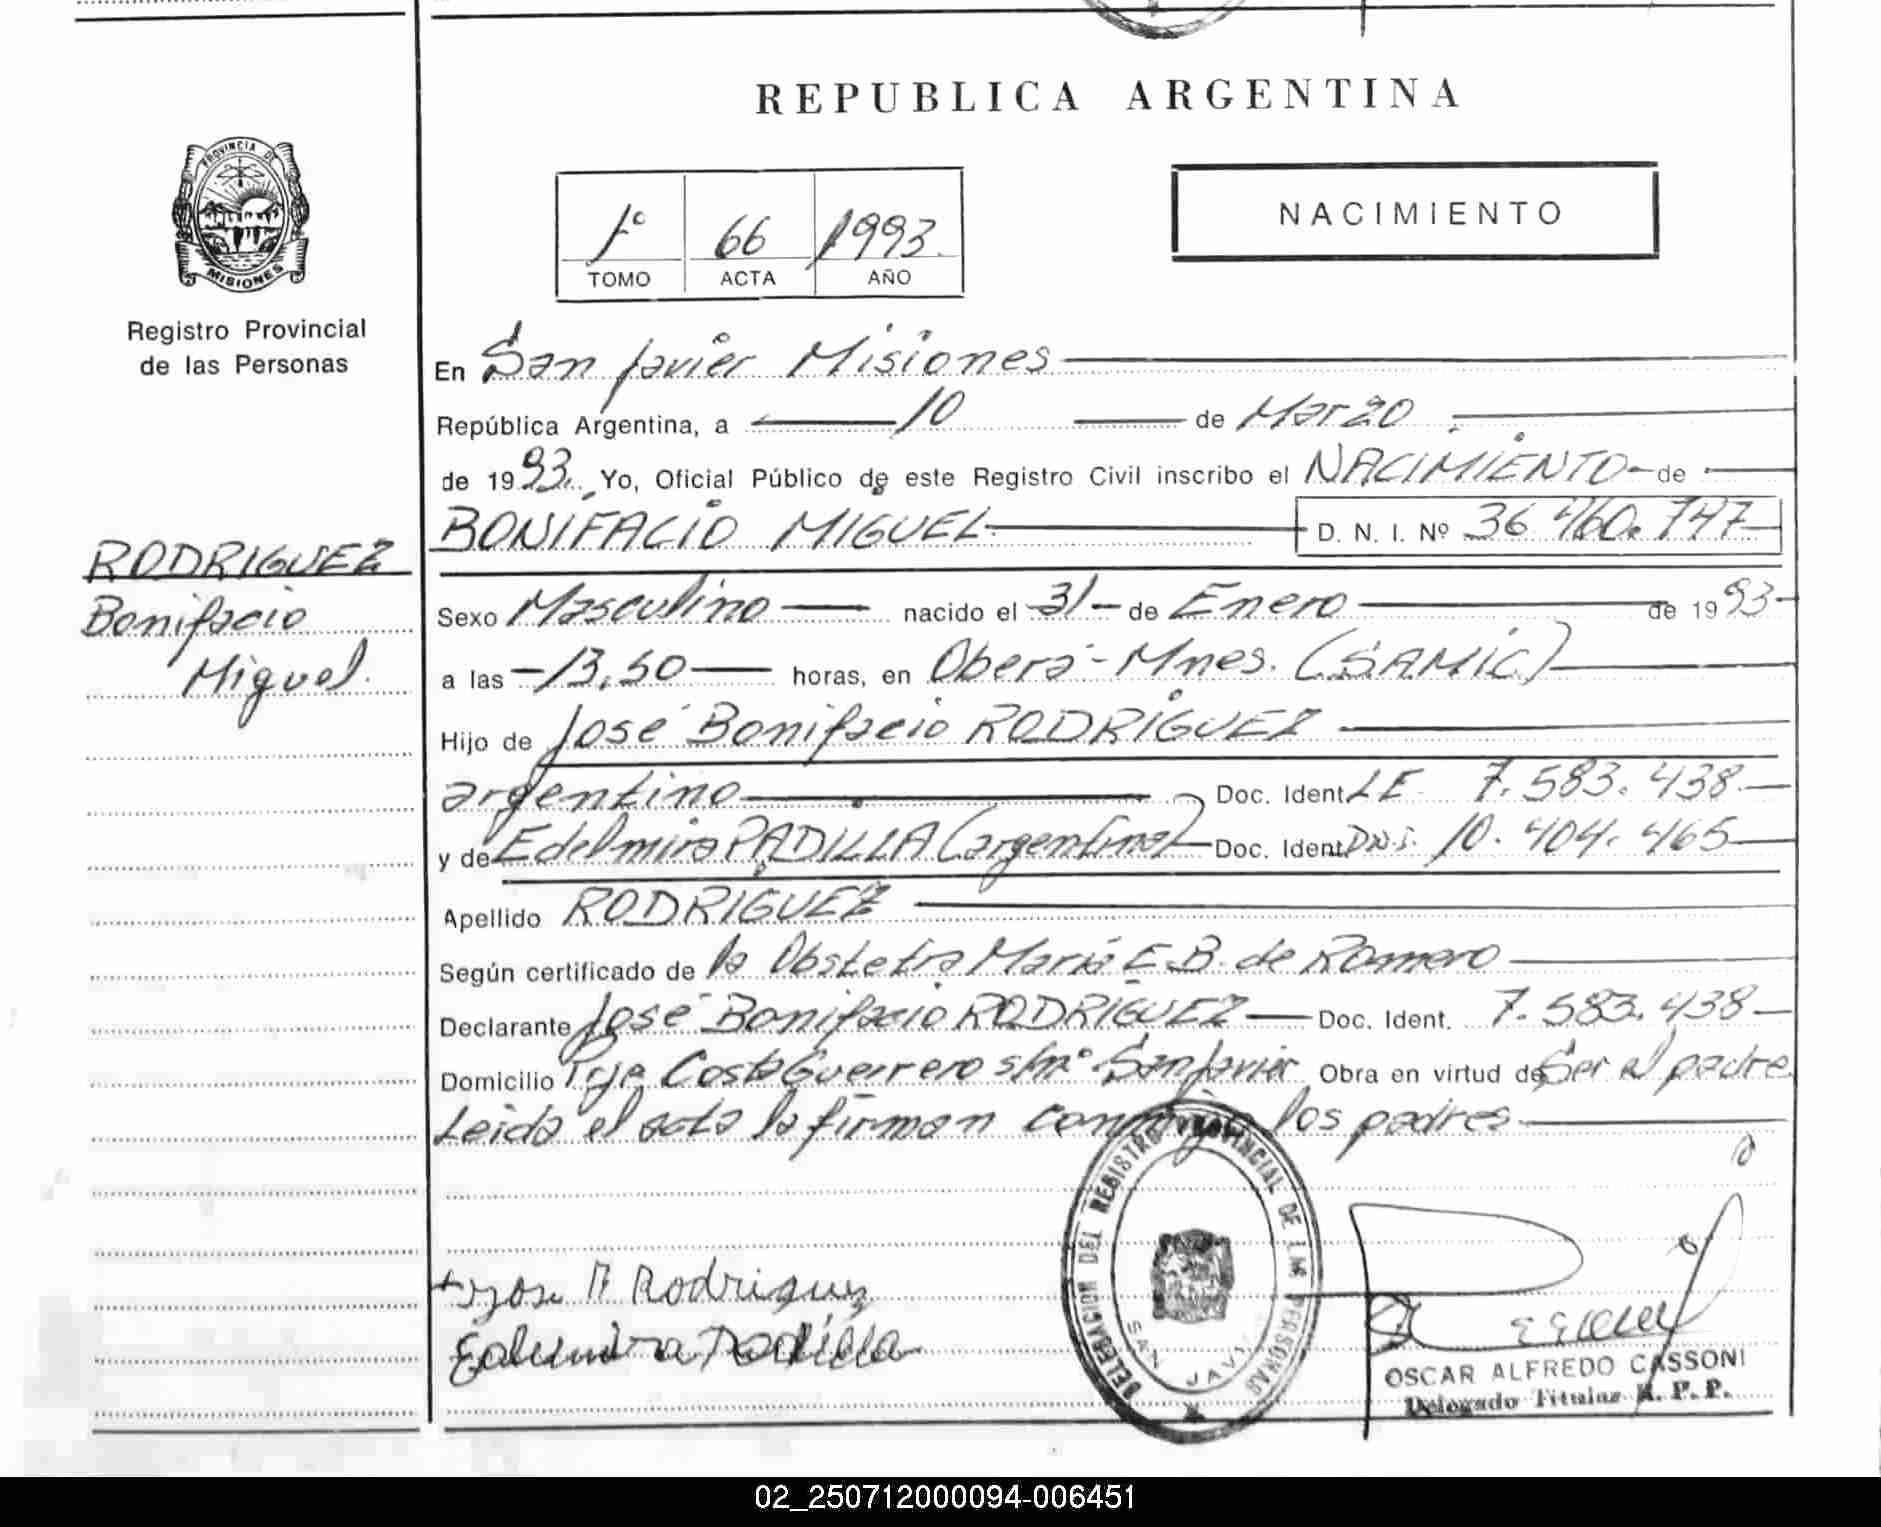 REPUBLICA ARGENTINA
PROVINCIA DE
MISIONES
Registro Provincial
de las Personas
1º 66 1993.
TOMO ACTA AÑO
NACIMIENTO
En San Javier Misiones
República Argentina, a 10 de Marzo
de 1993. Yo, Oficial Público de este Registro Civil inscribo el NACIMIENTO de
BONIFACIO MIGUEL D. N. I. Nº 36.460.747
RODRIGUEZ
Bonifacio
Miguel.
Sexo Masculino nacido el 31 de Enero de 1993
a las 13,50 horas, en Oberá - Mnes. (SAMIC)
Hijo de José Bonifacio RODRIGUEZ
argentino Doc. Ident. LE 7.583.438
y de Edelmira PADILLA (argentina) Doc. Ident. DNI. 10.404.465
Apellido RODRIGUEZ
Según certificado de la Obstetra María E.B. de Romero
Declarante José Bonifacio RODRIGUEZ Doc. Ident. 7.583.438
Domicilio Pje Costa Guerrero s/nº San Javier Obra en virtud de Ser el padre
Leida el acta la firman conmigo los padres
DELEGACION DEL REGISTRO PROVINCIAL DE LAS PERSONAS
SAN JAVIER
Jose B Rodriguez
Edelmira Padilla
OSCAR ALFREDO CASSONI
Delegado Titular R. P. P.
02_250712000094-006451